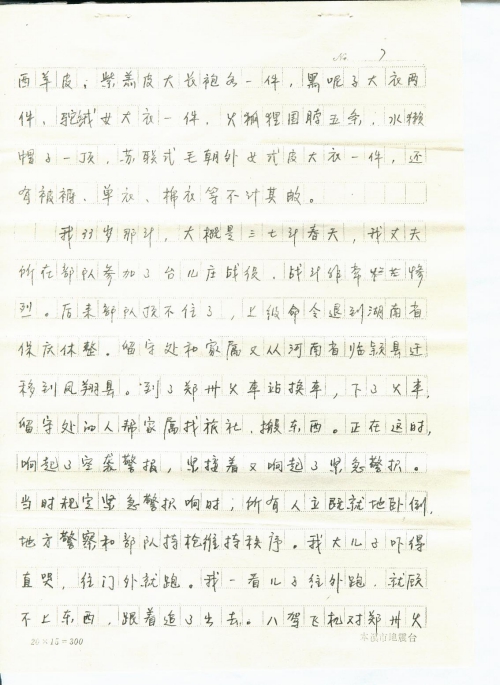 No 7
西羊皮；紫羔皮大长袍各一件，黑呢子大衣两
件、驼绒女大衣一件，火狐狸围脖五条；水獭
帽子一顶，苏联式毛朝外女式皮大衣一件，还
有被褥、单衣、棉衣等不计其的。
我33岁那年，大概是三七年春天，我丈夫
所在部队参加了台儿庄战役，战斗非常壮烈惨
烈。后来部队顶不住了，上级命令退到湖南省
保庆休整。留守处和家属又从河南省临颍县迁
移到凤翔县。到了郑州火车站换车，下了火车，
留守处的人帮家属找旅社、搬东西。正在这时，
响起了空袭警报，紧接着又响起了紧急警报。
当时规定紧急警报响时；所有人立既就地卧倒，
地方警察和部队持枪维持秩序。我大儿子吓得
直哭，往门外就跑。我一看儿子往外跑，就顾
不上东西，跟着追了出去。八驾飞机对郑州火
20×15=300
本溪市地震台